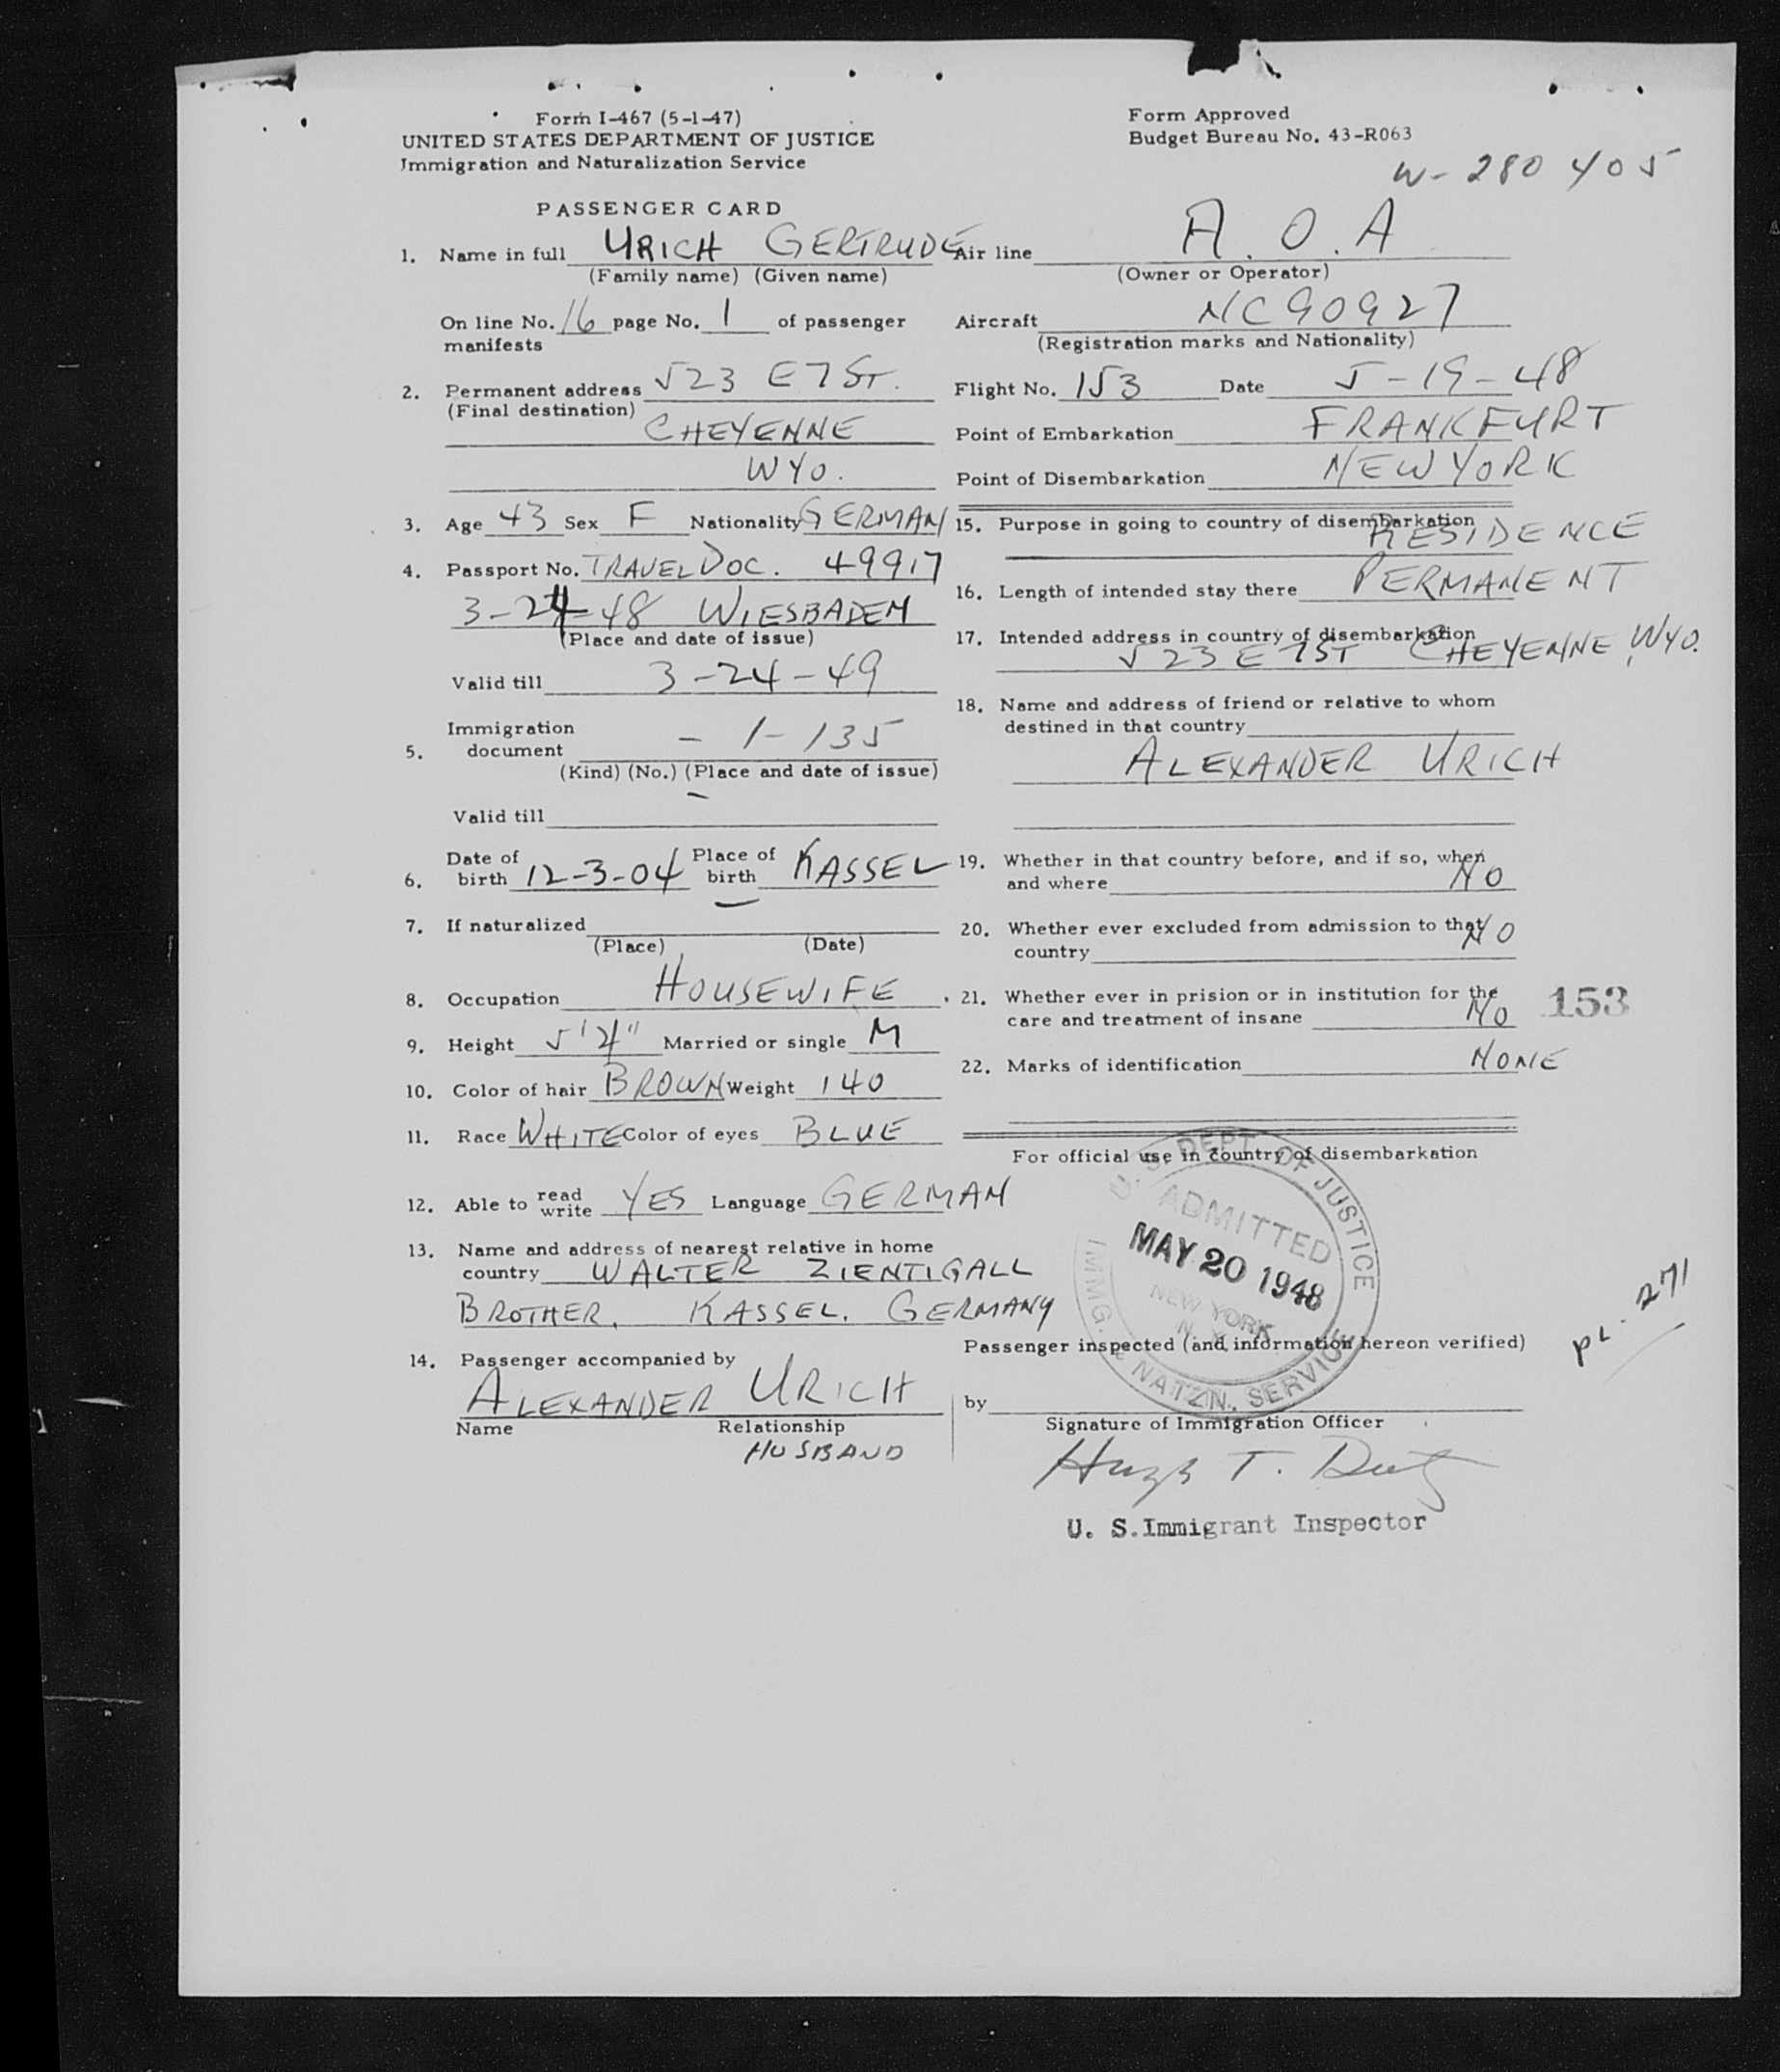 Form I-467 (5-1-47)
UNITED STATES DEPARTMENT OF JUSTICE
Immigration and Naturalization Service
PASSENGER CARD
Form Approved
Budget Bureau No. 43-R063
W- 280 405
1. Name in full URICH GERTRUDE
(Family name) (Given name)
On line No. 16 page No. 1 of passenger
manifests
2. Permanent address 523 E 7 ST.
(Final destination)
CHEYENNE
WYO.
3. Age 43 Sex F Nationality GERMAN
4. Passport No. TRAVEL DOC. 49917
3-24-48 WIESBADEN
(Place and date of issue)
Valid till 3-24-49
Immigration
5. document - 1-135
(Kind) (No.) (Place and date of issue)
-
Valid till
Date of Place of
6. birth 12-3-04 birth KASSEL
-
7. If naturalized
(Place) (Date)
8. Occupation HOUSEWIFE
9. Height 5'4" Married or single M
10. Color of hair BROWN Weight 140
11. Race WHITE Color of eyes BLUE
12. Able to read write YES Language GERMAN
13. Name and address of nearest relative in home
country WALTER ZIENTIGALL
BROTHER. KASSEL. GERMANY
14. Passenger accompanied by
ALEXANDER URICH
Name Relationship
HUSBAND
Air line A. O. A
(Owner or Operator)
Aircraft NC90927
(Registration marks and Nationality)
Flight No. 153 Date 5-19-48
Point of Embarkation FRANKFURT
Point of Disembarkation NEW YORK
15. Purpose in going to country of disembarkation
RESIDENCE
16. Length of intended stay there PERMANENT
17. Intended address in country of disembarkation
523 E 7 ST CHEYENNE, WYO.
18. Name and address of friend or relative to whom
destined in that country
ALEXANDER URICH
19. Whether in that country before, and if so, when
and where NO
20. Whether ever excluded from admission to that
country NO
21. Whether ever in prision or in institution for the
care and treatment of insane NO
153
22. Marks of identification NONE
For official use in country of disembarkation
U. S. DEPT. OF JUSTICE
ADMITTED
MAY 20 1948
NEW YORK
N. Y.
IMMG. & NATZN. SERVICE
PL. 271
Passenger inspected (and information hereon verified)
by
Signature of Immigration Officer
Hugh T.
U. S. Immigrant Inspector